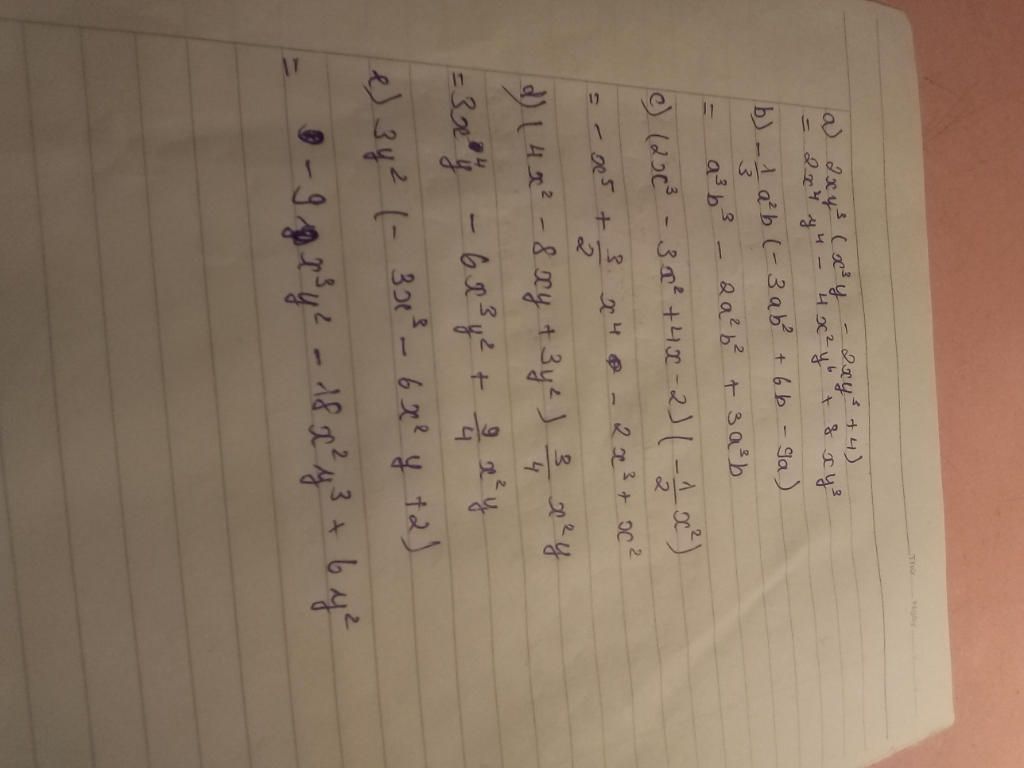 a) 2xy³(x³y - 2xy³ + 4)
= 2x⁴y⁴ - 4x²y⁶ + 8xy³
b) -1/3 a²b(-3ab² + 6b - 9a)
= a³b³ - 2a²b² + 3a³b
c) (2x³ - 3x² + 4x - 2)(-1/2 x²)
= -x⁵ + 3/2 x⁴ - 2x³ + x²
d) (4x² - 8xy + 3y²) 3/4 x²y
= 3x⁴y - 6x³y² + 9/4 x²y
e) 3y²(-3x³ - 6x²y + 2)
= -9x³y² - 18x²y³ + 6y²